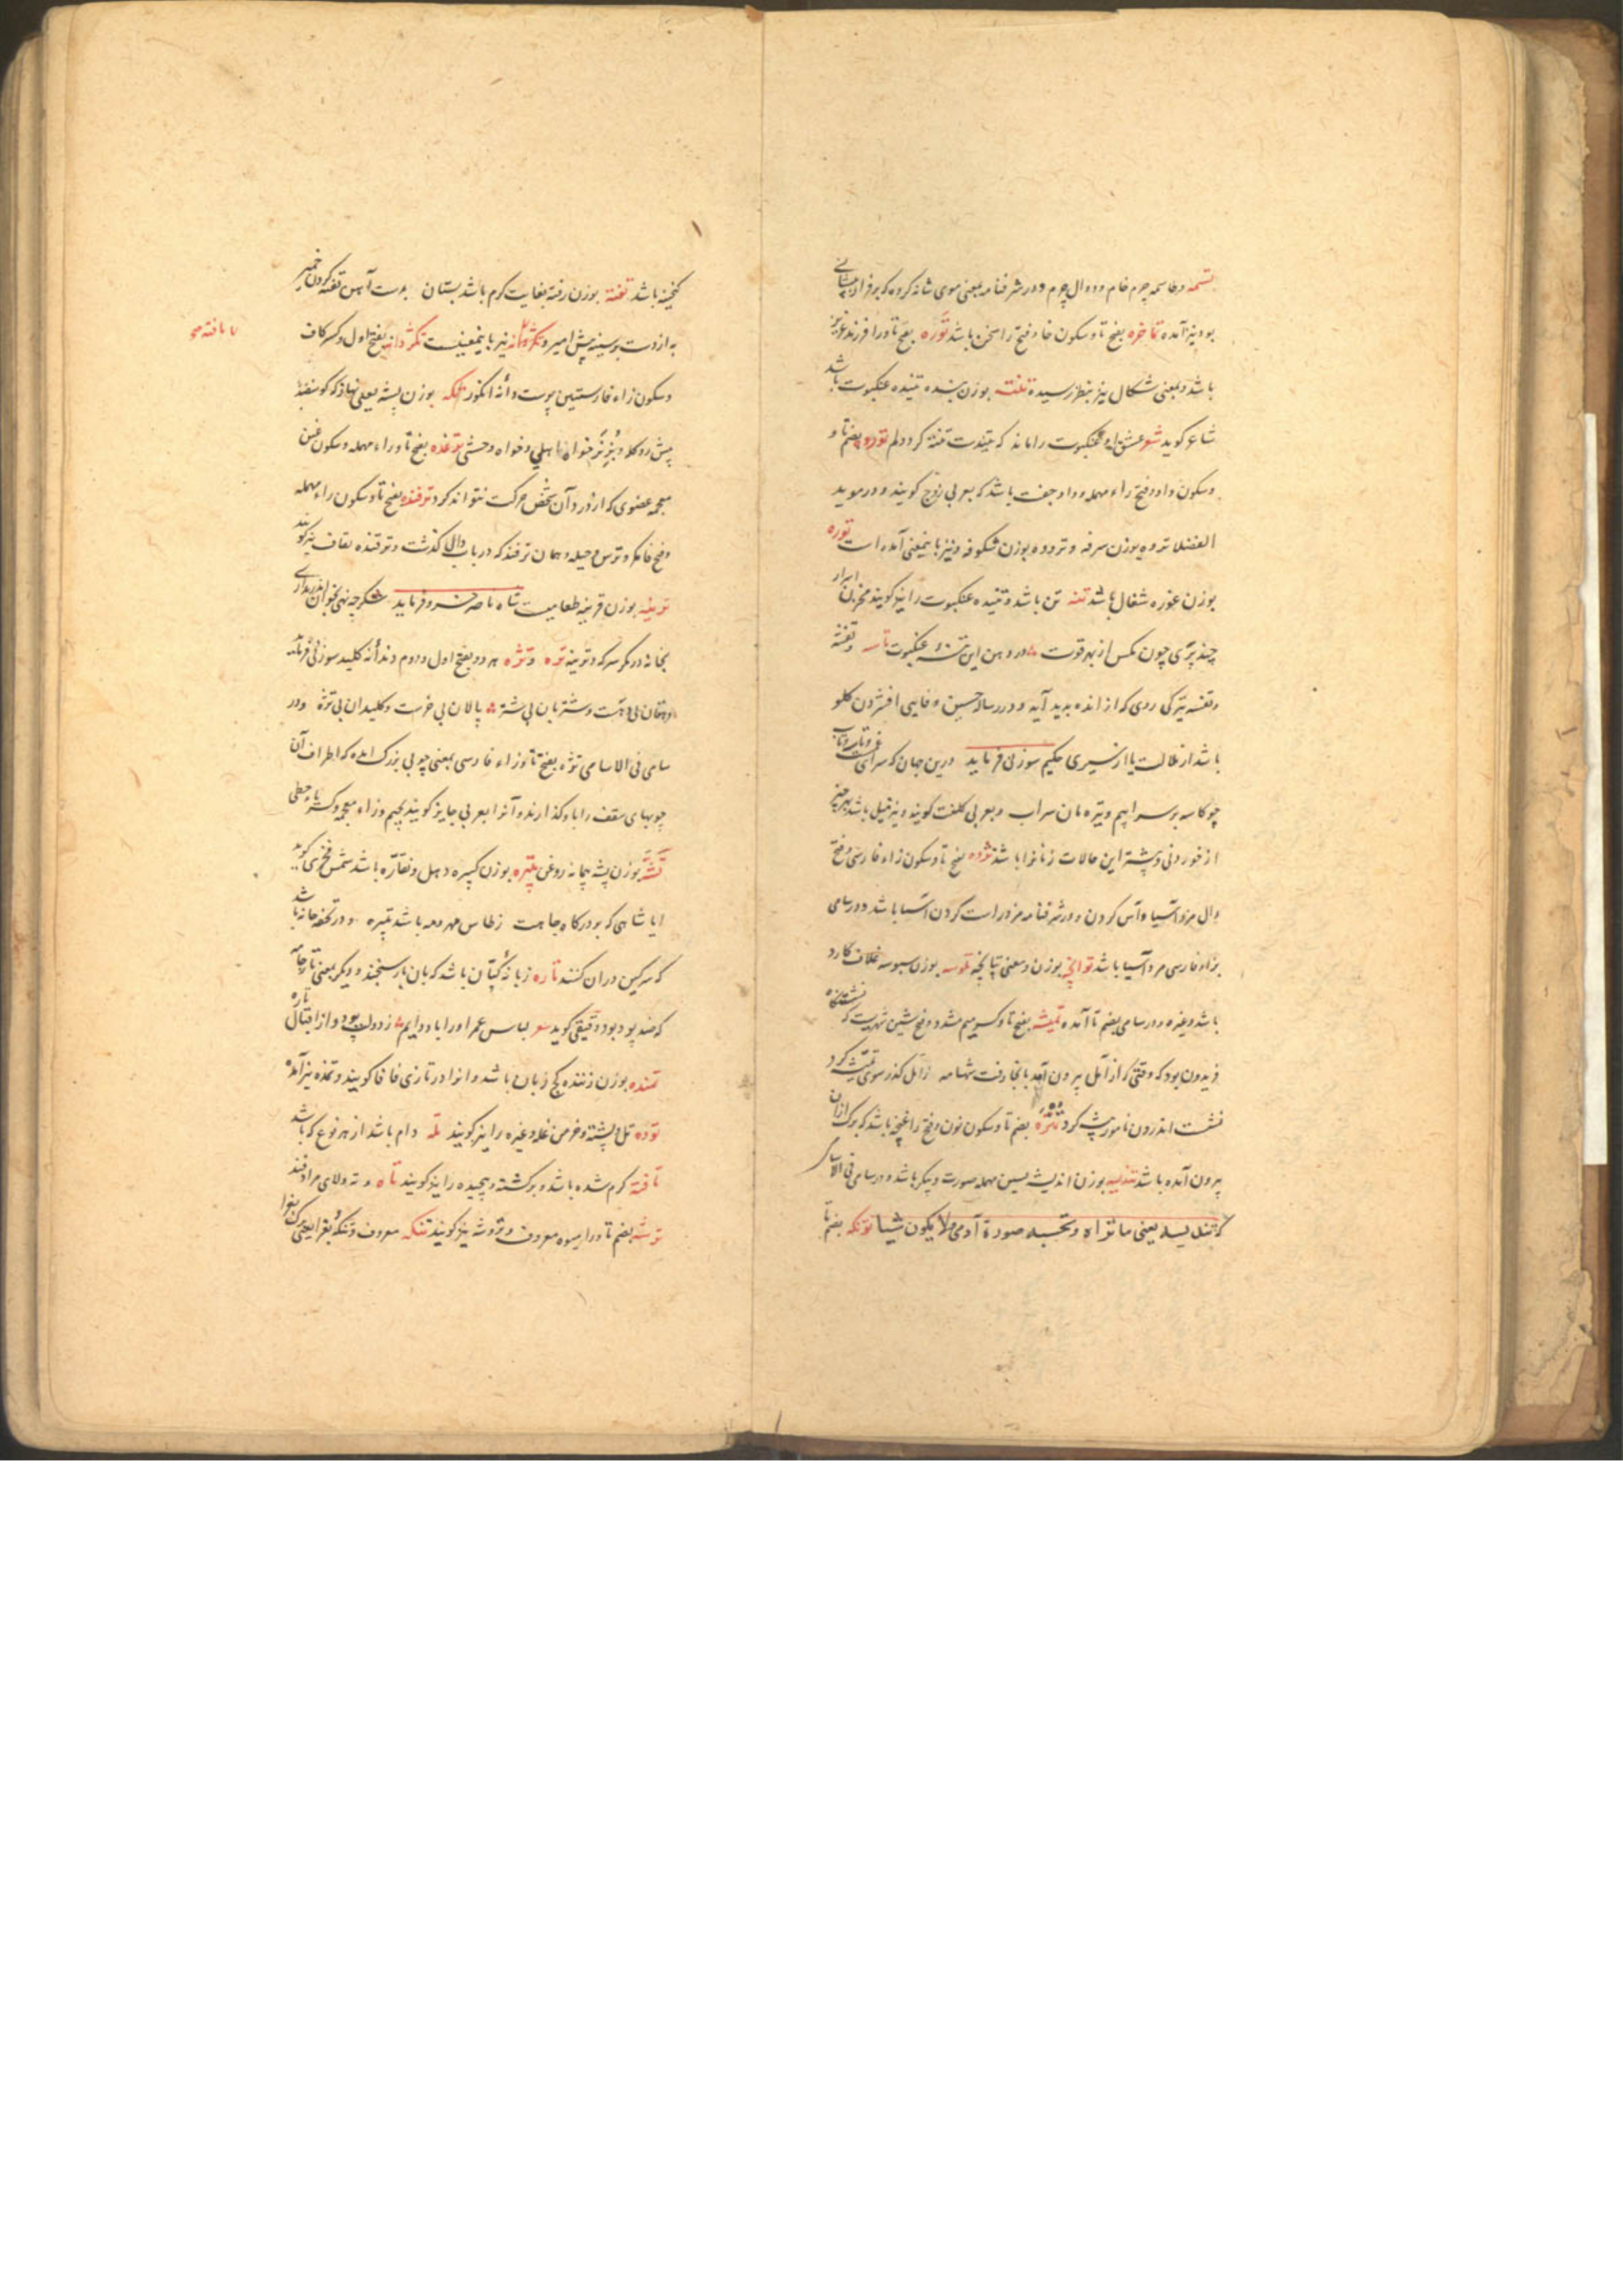 تسمه و تاسمه چرم خام و دوال چرم و در شرفنامه بمعنی موی شانه کرده که بر فراز پیشانی
بود نیز آمده تماخره بفتح تا و سکون خا و فتح را سخن باشد توره بفتح تا و را فرزند عزیز
باشد و بمعنی شکال نیز بنظر رسیده تفنته بوزن تنیده عنکبوت باشد
شاعر گوید شعر عشق او عنکبوت را ماند که بتندست تفنه گرد دلم تورو بضم تا و
و سکون واو و فتح راء مهمله و واو جفت باشد که بعربی زوج گویند و در موید
الفضلا تروه بوزن سرفه و تروده بوزن شکوفه و نیز باینمعنی آمده است توره
بوزن غوره شغال باشد تنه تن باشد و تنیده عنکبوت را نیز گویند مخزن اسرار
چند پری چون مگس از بهر قوت در دهن این تنه عنکبوت تاسه و تفسه
و تفسه تیرگی روی که از انده پدید آید و در رساله حسین وفایی افشردن گلو
باشد از ملالت یا از سیری حکیم سوزنی فرماید درین جهان که سرای غمست و تاسه و تاب
چو کاسه بر سر آبیم و تیره مان سراب و بعربی کلفت گویند و نیز میل باشد بهر چیز
از خوردنی و بیشتر این حالات زنانرا باشد تژده بفتح تا و سکون زاء فارسی و فتح
دال مزد آسیا و آس کردن و در شرفنامه مزد راست کردن آسیا باشد و در سامی
بزاء فارسی مرد آسیا باشد تواپخه بوزن و معنی تپانچه تلوسه بوزن سبوسه غلاف کارد
باشد و غیره و در سامی بضم تا آمده تمیشه بفتح تا و کسر میم مشدد و فتح شین شهریست که نشستنگاه
فریدون بود که وقتی که از آمل بیرون آمد بانجا رفت شهنامه ز آمل گذر سوی تمیشه کرد
نشست اندرون نامور بیشه کرد تنژه بضم تا و سکون نون و فتح زا غنچه باشد که برگ ازان
بیرون آمده باشد تندیسه بوزن اندیشه بسین مهمله صورت و پیکر باشد و در سامی فی الاسامی
که تندیسه یعنی ما تراه و تحسبه صورة آدمی و لا یکون شیئا توتکه بضم تا
گنجینه باشد تفته بوزن رفته بغایت گرم باشد بستان بدست آهن تفته کردن خمیر
به از دست بر سینه پیش امیر و تکژدانه نیز باینمعنیست تکژدانه بفتح اول و کسر کاف
و سکون زاء فارسی پوست و دانه انگور تکه بوزن پشه یعنی نهاز که گوسفند
پیش رو گله و بز نر خواه اهلی و خواه وحشی ترغده بفتح تا و راء مهمله و سکون غین
معجمه عضوی که از درد آن شخص حرکت نتواند کرد ترفنده بفتح تا و سکون راء مهمله
و فتح فا مکر و ترس و حیله و همان ترفند که در باب دال گذشت و ترقنده بقاف نیز گویند
ترینه بوزن قرینه طعامیست شاه ناصر خسرو فرماید گرچه نهی بخوان اندر داری
بخانه در مگر سرکه و ترینه تژه و تژه هر دو بفتح اول و دوم دندانه کلید سوزنی فرماید
دهقان بی دهست و شتربان بی شتر پالان بی خرست و کلیدان بی تژه و در
سامی فی الاسامی تژه بفتح تا و زاء فارسی بمعنی چوبی بزرگ آمده که اطراف آن
چوبهای سقف را باو گذارند و آنرا بعربی جایز گویند بجیم و زاء معجمه
تشر بوزن پشه پیمانه روغن تبیره بوزن کبیره دهل و نقاره باشد شمس فخری گوید
ایا شاهی که بر درگاه جاهت ز طاس مهر و مه باشد تبیره و در تحفه خانه باشد
که سرگین دران کنند تاره زبانه کپان باشد که بان بار سنجند و دیگر بمعنی تار جامه
که ضد پود بود دقیقی گوید شعر لباس عمر او را باد دایم ز دولت پود و از اقبال تاره
تمنده بوزن زننده کج زبان باشد و انرا در تازی فافا گویند و تمده نیز آمده
توده تل و پشته و خرمن غله و غیره را نیز گویند تله دام باشد از هر نوع که باشد
تافته گرم شده باشد و برگشته و پیچیده را نیز گویند تاه و ته و لای مرادفند
ترشه بضم تا و را میوه معروف و تروشه نیز گویند تنکه معروف و تنکه بغرا یعنی برگ بغرا